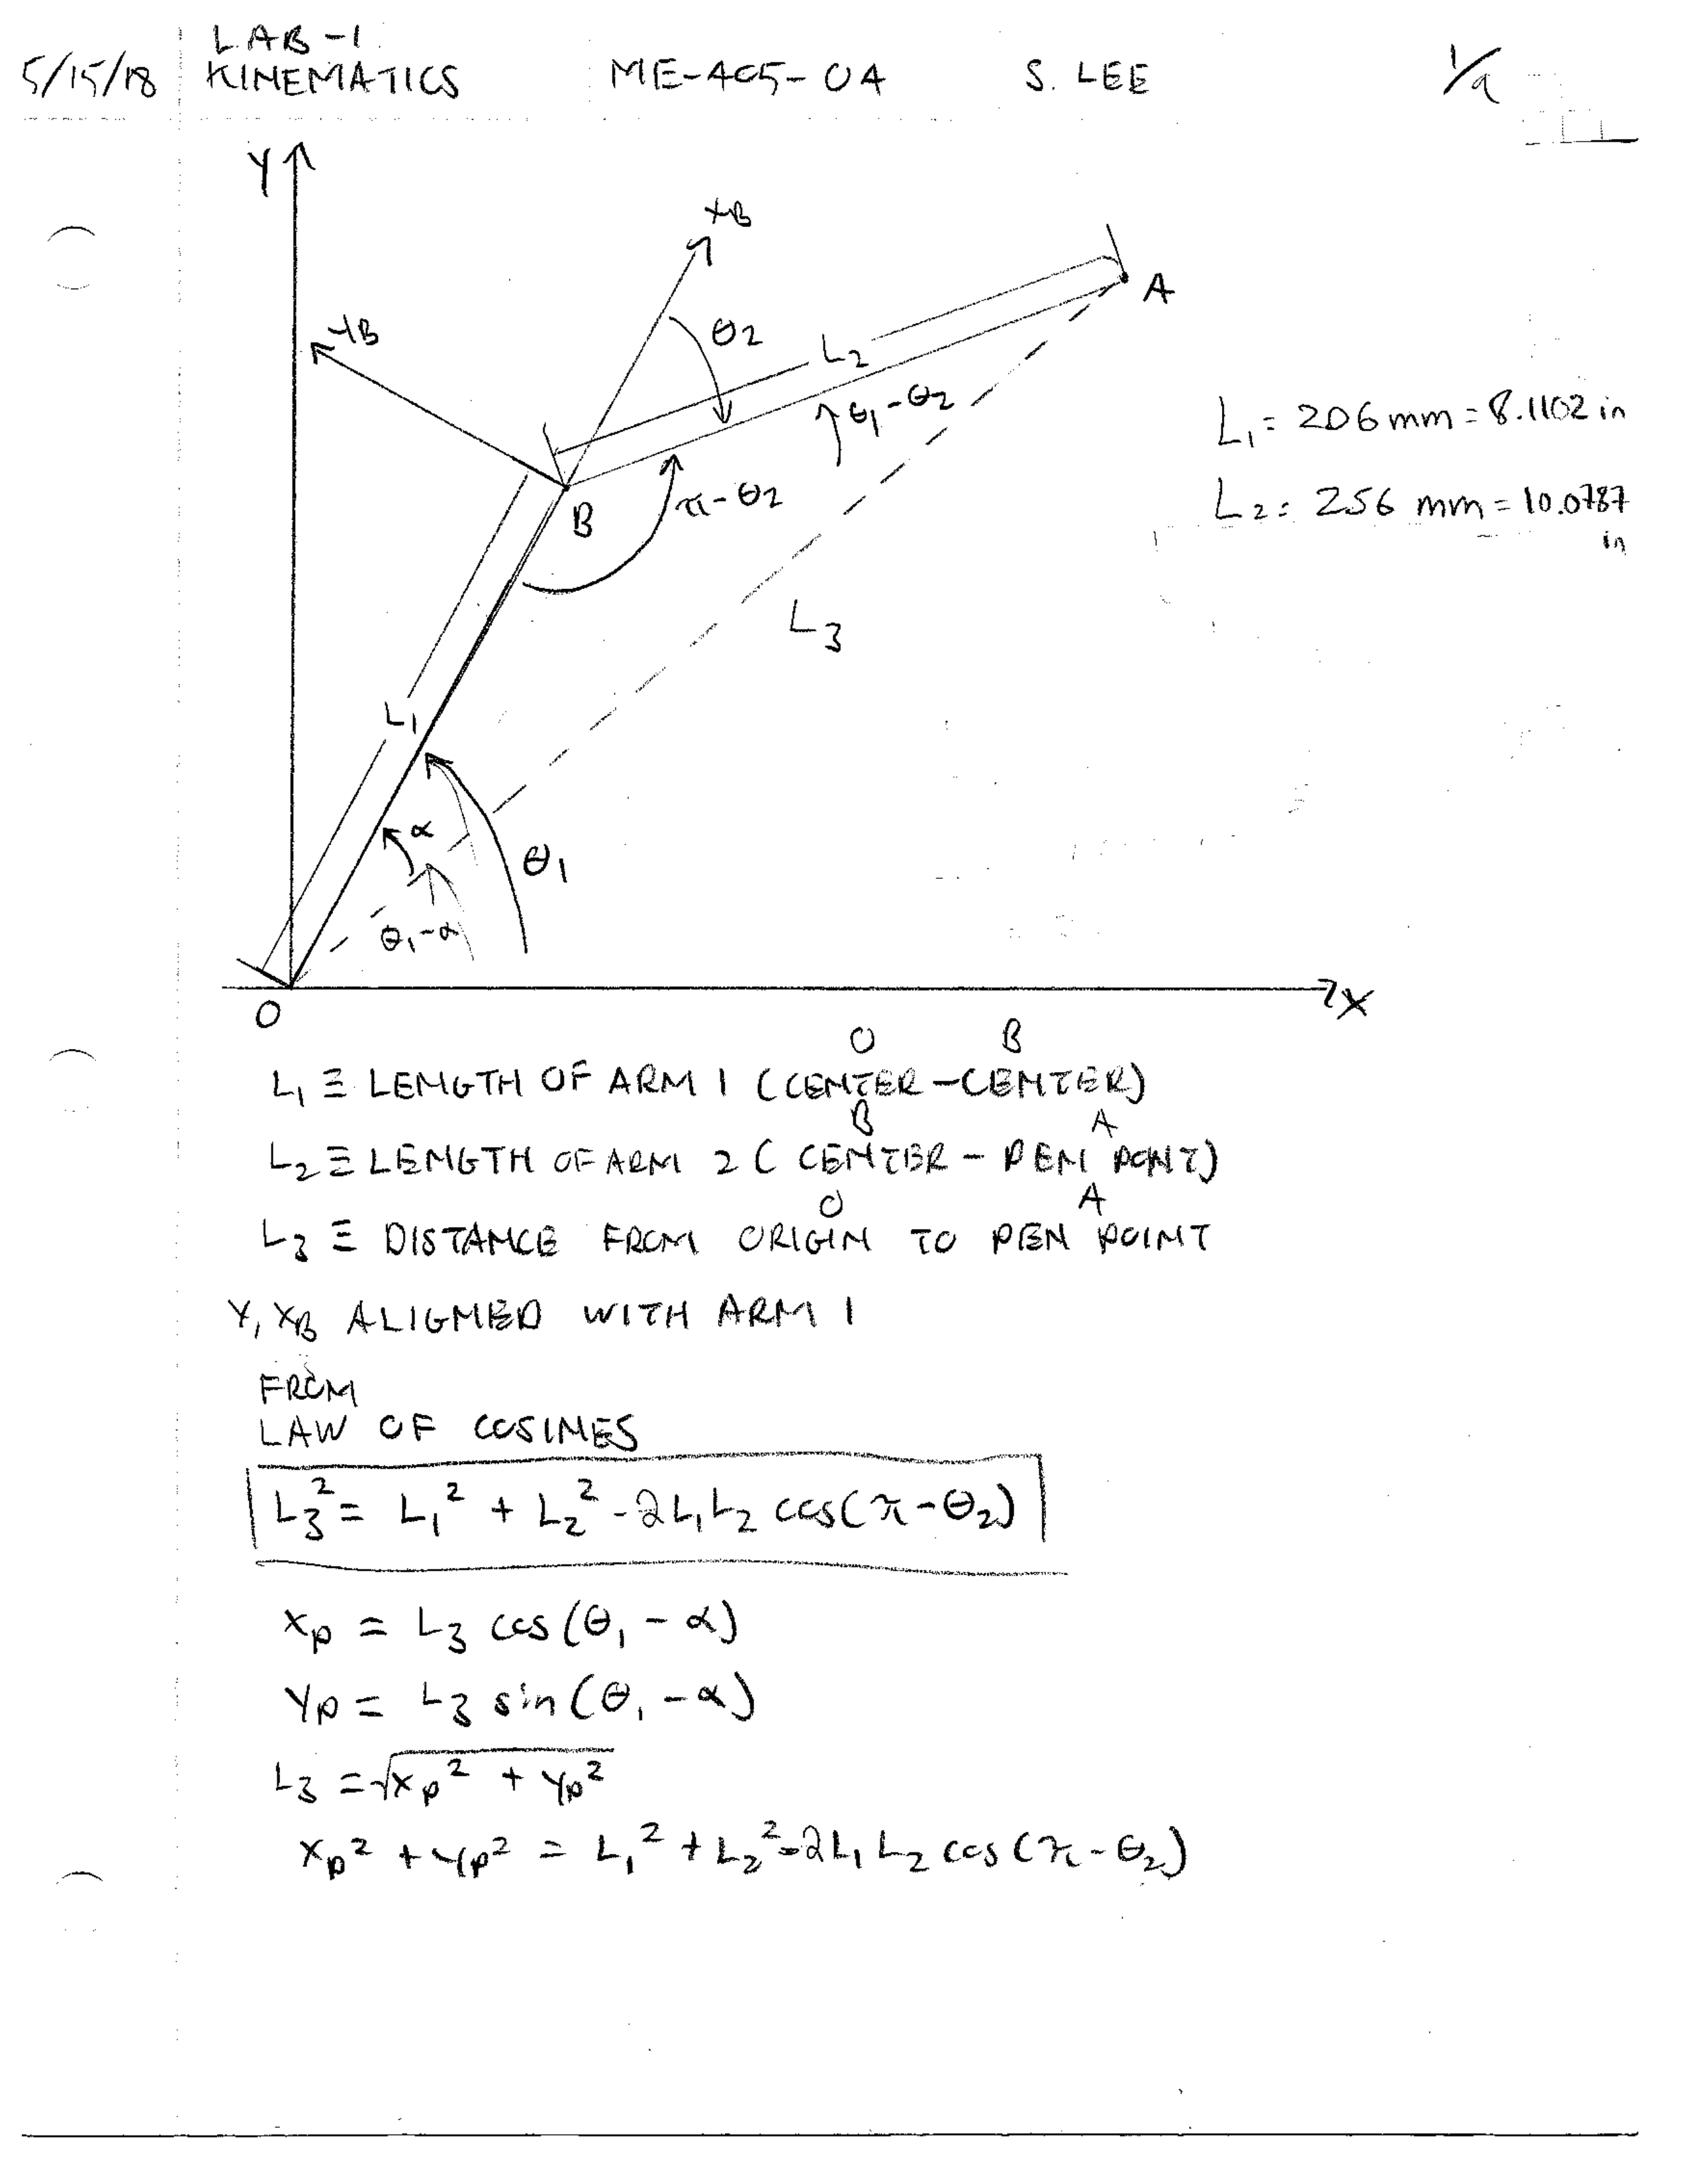 LAB-1
5/15/18 KINEMATICS ME-405-04 S. LEE 1/9
Y
XB
A
YB
θ2
L2
θ1-θ2
L1 = 206 mm = 8.1102 in
π-θ2
B
L2 = 256 mm = 10.0787
in
L3
L1
α
θ1
θ1-α
O
X
O B
L1 ≡ LENGTH OF ARM 1 (CENTER-CENTER)
B A
L2 ≡ LENGTH OF ARM 2 (CENTER - PEN POINT)
O A
L3 ≡ DISTANCE FROM ORIGIN TO PEN POINT
Y, XB ALIGNED WITH ARM 1
FROM
LAW OF COSINES
L3² = L1² + L2² - 2L1L2 cos(π-θ2)
xp = L3 cos(θ1 - α)
yp = L3 sin(θ1 - α)
L3 = √xp² + yp²
xp² + yp² = L1² + L2² - 2L1L2 cos(π-θ2)